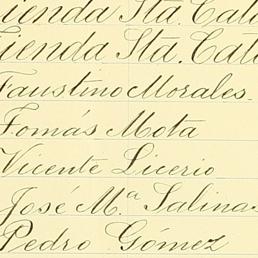 ienda Sta. Cata
ienda Sta. Cata
Faustino Morales.
Tomás Mota
Vicente Licerio
José M.ª Salinas
Pedro Gómez